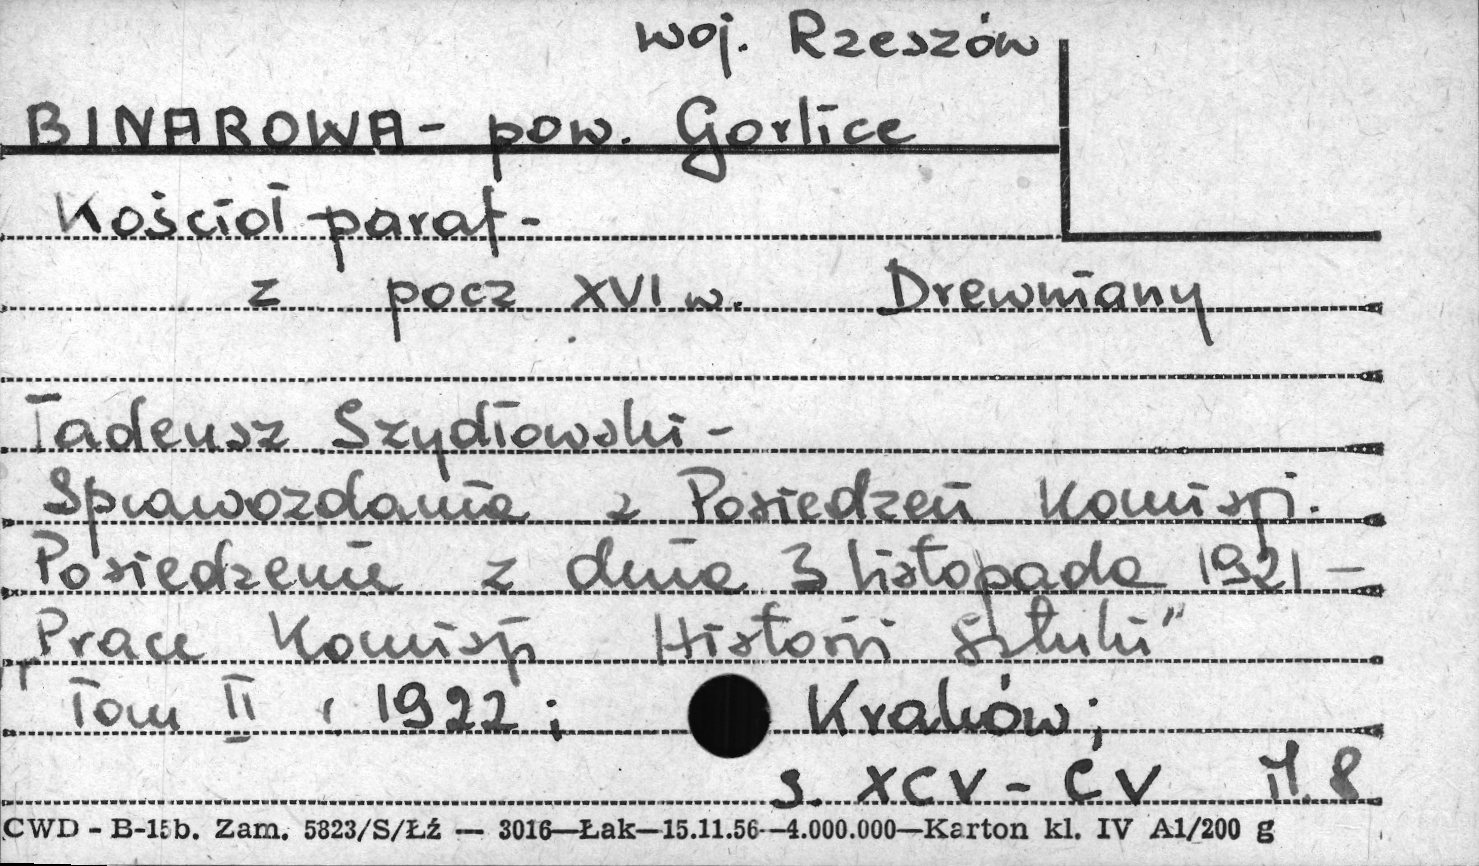 woj. Rzeszów
BINAROWA - pow. Gorlice
Kościół paraf -
z pocz XVI w. Drewniany
Tadeusz Szydłowski -
Sprawozdania z Posiedzeń Komisji.
Posiedzenie z dnia 3 listopada 1921 -
„Prace Komisji Historii Sztuki”
Tom II, 1922; Kraków;
s. XCV - CV il. 8
CWD - B-15b. Zam. 5823/S/Łź — 3016—Łak—15.11.56—4.000.000—Karton kl. IV A1/200 g